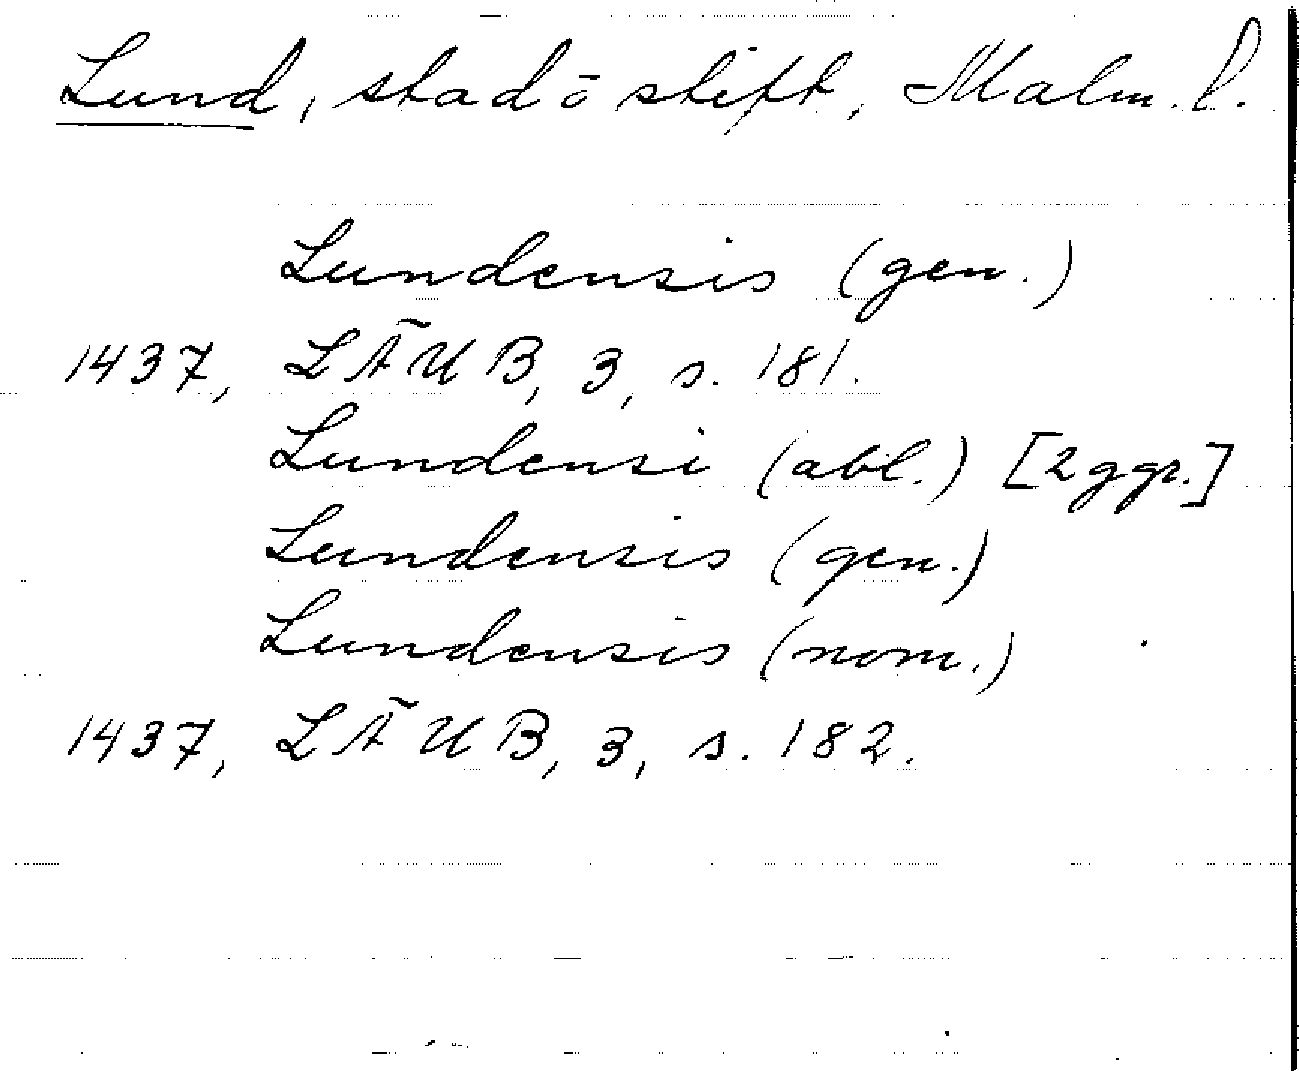 Lund, stad ō stift, Malm. l.
Lundensis (gen.)
1437, LÄUB, 3, s. 181.
Lundensi (abl.) [2 ggr.]
Lundensis (gen.)
Lundensis (nom.)
1437, LÄUB, 3, s. 182.